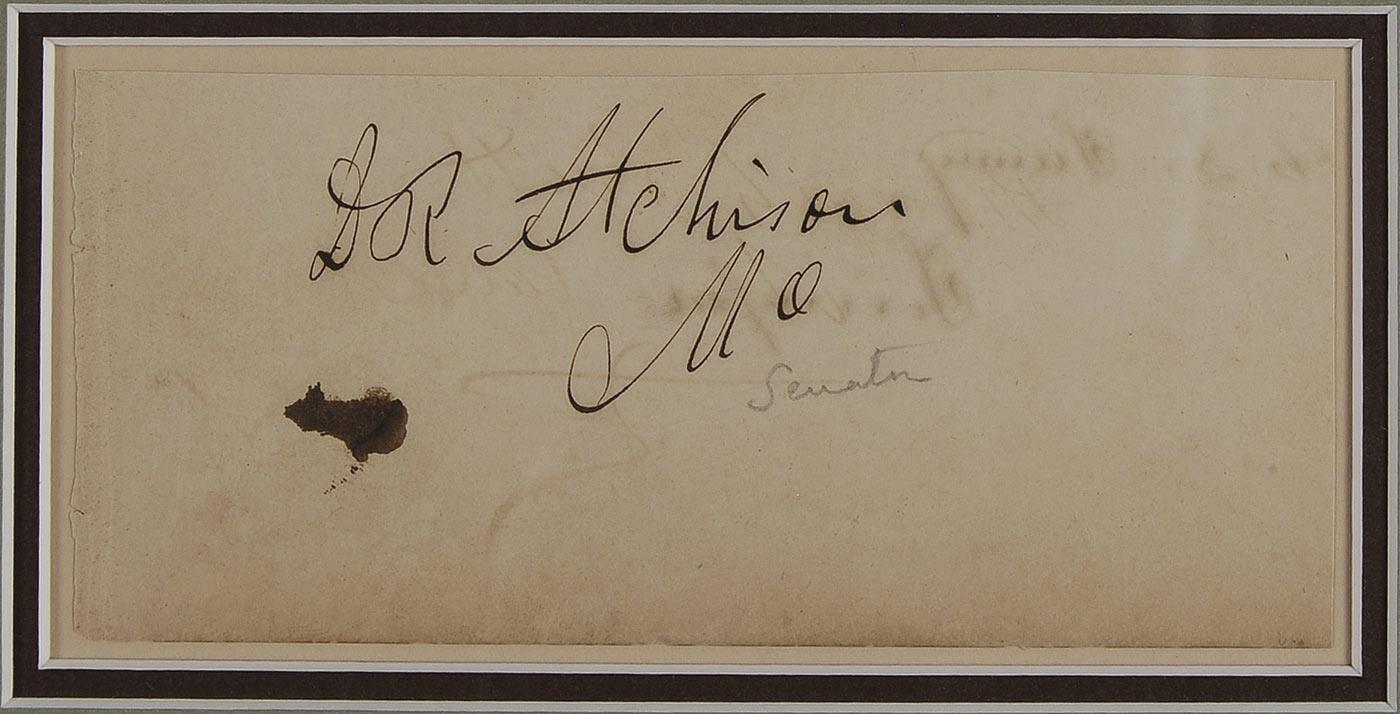 D R Atchison
Mo
Senator